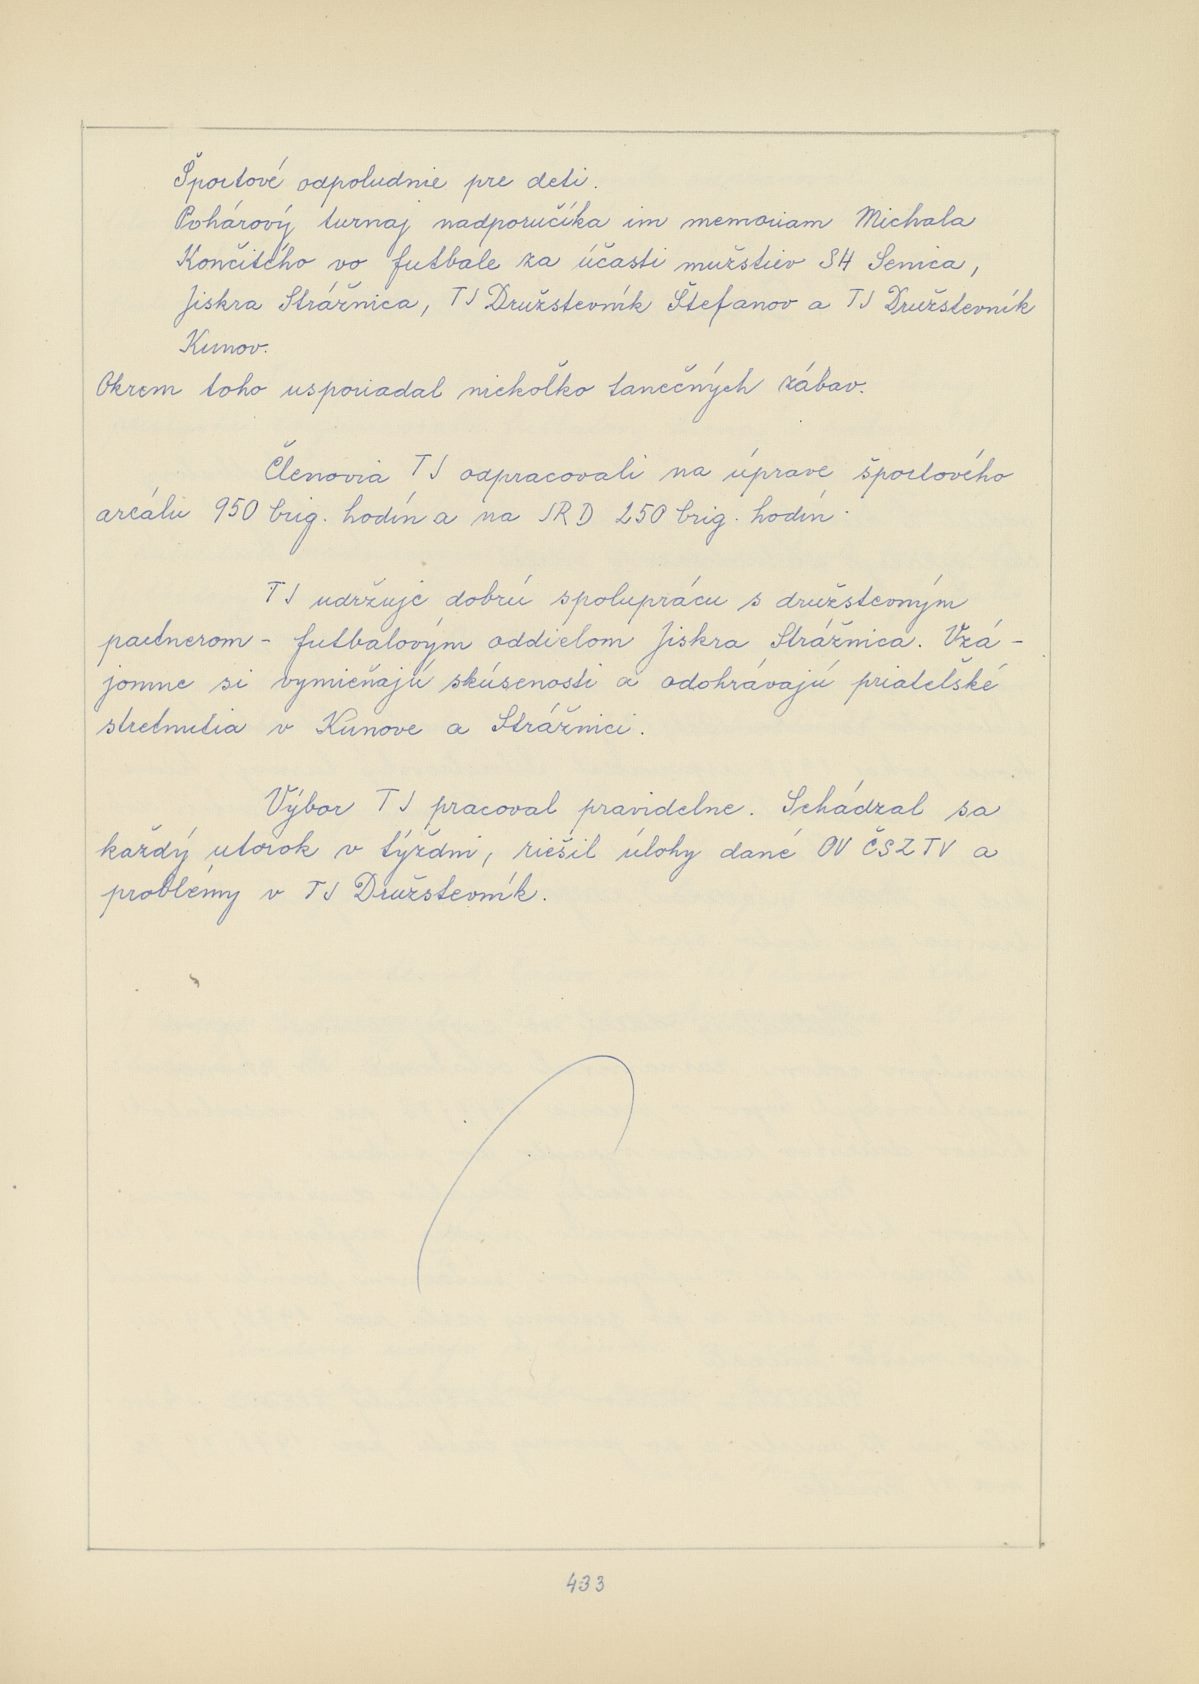 Športové odpoludnie pre deti.
Pohárový turnaj nadporučíka im memoriam Michala
Končitého vo futbale za účasti mužstiev SH Senica,
Jiskra Strážnica, TJ Družstevník Štefanov a TJ Družstevník
Kunov.
Okrem toho usporiadal niekoľko tanečných zábav.
Členovia TJ odpracovali na úprave športového
areálu 950 brig. hodín a na JRD 250 brig. hodín.
TJ udržuje dobrú spoluprácu s družstevným
partnerom - futbalovým oddielom Jiskra Strážnica. Vzá-
jomne si vymieňajú skúsenosti a odohrávajú priateľské
stretnutia v Kunove a Strážnici.
Výbor TJ pracoval pravidelne. Schádzal sa
každý utorok v týždni, riešil úlohy dané OV ČSZTV a
problémy v TJ Družstevník.
433